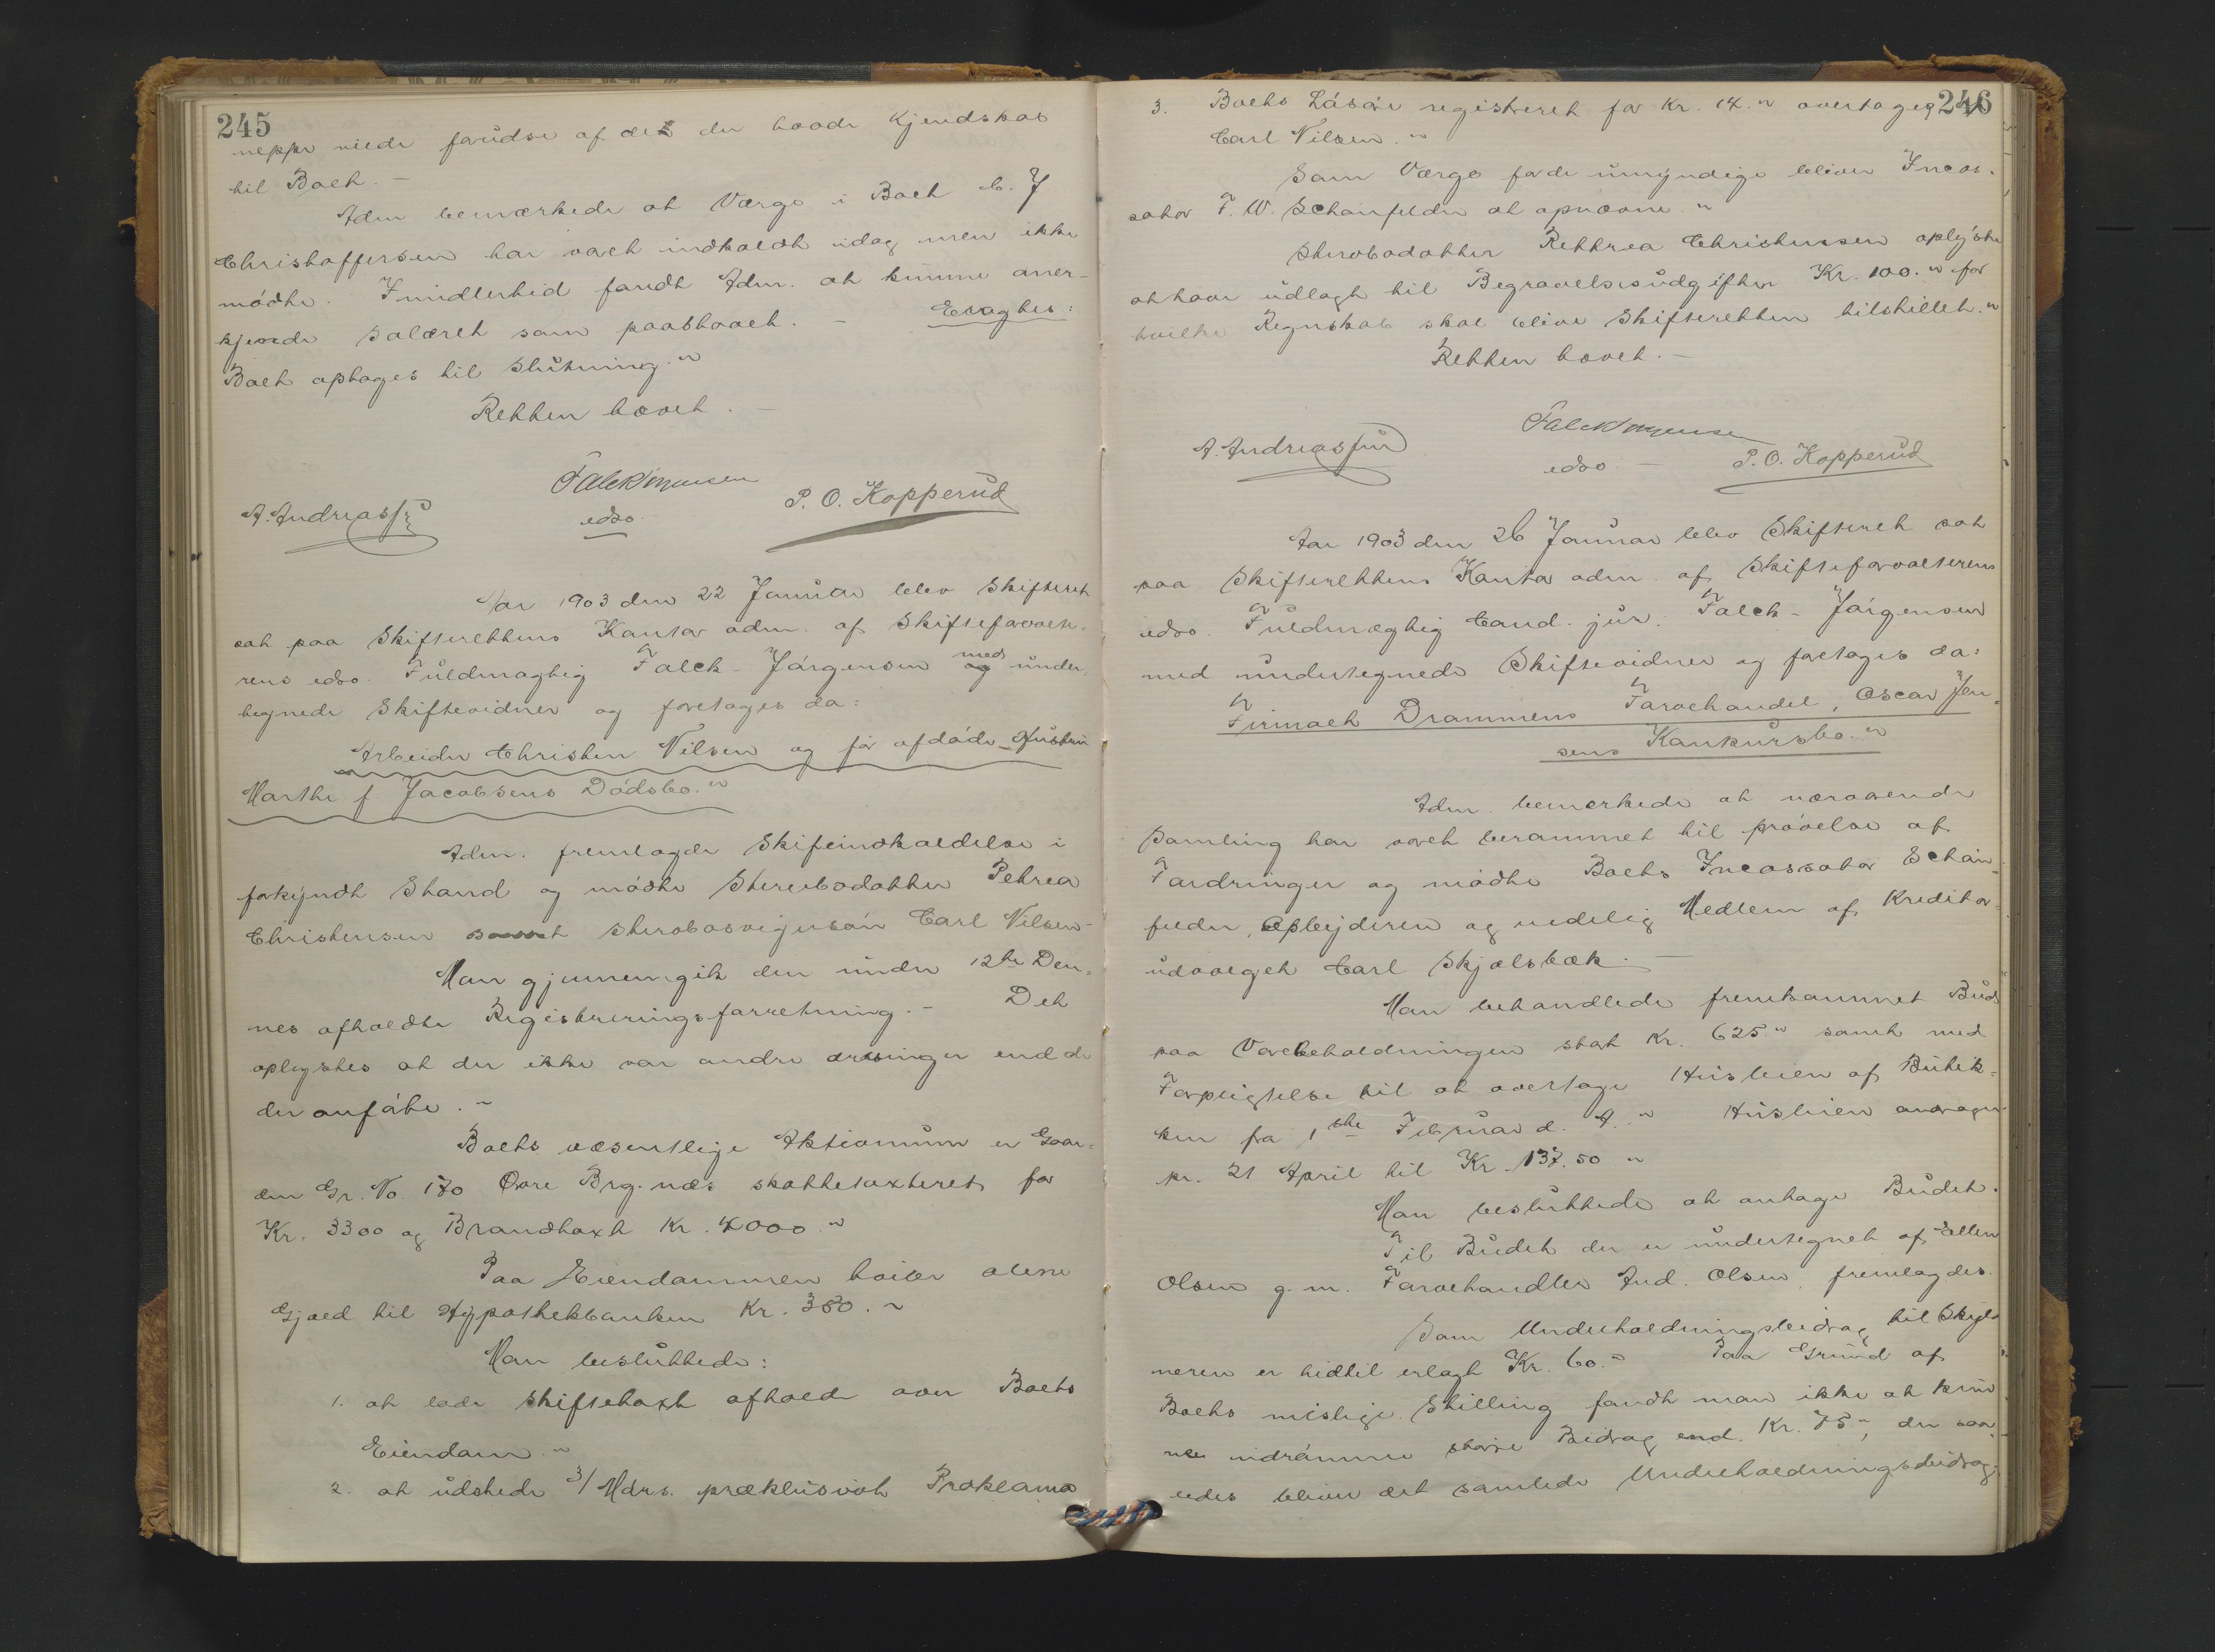 245
neppe vilde forudse af det der havde Kjendskab
til Boet. –
Adm bemærkede at Værge i Boet C. J
Christoffersen har været indkaldt idag men ikke
mødte. Imidlertid fandt Adm. at kunne aner-
kjende Salæret som paastaaet. – Eragtes:
Boet optages til Slutning."
Retten hævet. –
Falck Jørgensen
A. Andreassen
edso
P. O. Kopperud
Aar 1903 den 22 Januar blev Skifteret
sat paa Skifterettens Kontor adm. af Skifteforvalte-
rens edso. Fuldmægtig Falck-Jørgensen og med under-
tegnede Skiftevidner og foretages da:
Arbeider Christen Nilsen og før afdøde Hustru
Marthe f. Jacobsens Dødsbo."
Adm. fremlagde Skifteindkaldelse i
forkyndt Stand og mødte Stervbodatter Petrea
Christensen samt Stervbosvigersøn Carl Nilsen –
Man gjennemgik den under 12te Den-
nes afholdte Registreringsforretning. – Det
oplystes at der ikke var andre arvinger end de
der anførte. –
Boets væsentlige Aktivum er Gaar-
den Gr. No. 170 Øvre Brg.næs skattetaxteret for
Kr. 3300 og Brandtaxt Kr. 4000."
Paa Eiendommen hviler alene
Gjæld til Hypothekbanken Kr. 380. –
Man besluttede:
1. at lade Skiftetaxt afholde over Boets
Eiendom."
2. at udstede 3/ Mdrs. præklusivt Proklama
246
3. Boets Løsøre registreret for Kr. 14." overtages af
Carl Nilsen."
Som Værge for de umyndige bliver Incas-
sator F. W. Schønfelder at opnævne."
Stervbodatter Petrea Christensen oplyste
at have udlagt til Begravelsesudgifter Kr. 100." for
hvilke Regnskab skal blive Skifteretten tilstillet."
Retten hævet. –
Falck Jørgensen
A. Andreassen
edso. –
P. O. Kopperud
Aar 1903 den 26 Januar blev Skifteret sat
paa Skifterettens Kontor adm. af Skifteforvalterens
edso. Fuldmægtig Cand. jur. Falck-Jørgensen
med undertegnede Skiftevidner og foretages da:
Firmaet Drammens Farvehandel, Oscar Jen-
sens Konkursbo."
Adm. bemærkede at nærværende
Samling har været berammet til prøvelse af
Fordringer og mødte Boets Incassator Schøn-
felder, Opbyderen og midlig Medlem af Kreditor-
udvalget Carl Skjælsbæk. –
Man behandlede fremkommet Bud
paa Varebeholdningen stort Kr. 625." samt med
Forpligtelse til at overtage Husleien af Butik-
ken fra 1ste Februar d. A." Husleien andrager
pr. 21 April til Kr. 137.50"
Man besluttede at antage Budet.
Til Budet der er undertegnet af Ellen
Olsen g. m. Farvehandler And. Olsen, fremlagdes.
Som Underholdningsbidrag til Skyld-
neren er hidtil erlagt Kr. 60." Paa Grund af
Boets mislige Stilling fandt man ikke at kun-
ne indrømme større Bidrag end Kr. 75", der saa-
ledes bliver det samlede Underholdningsbidrag.